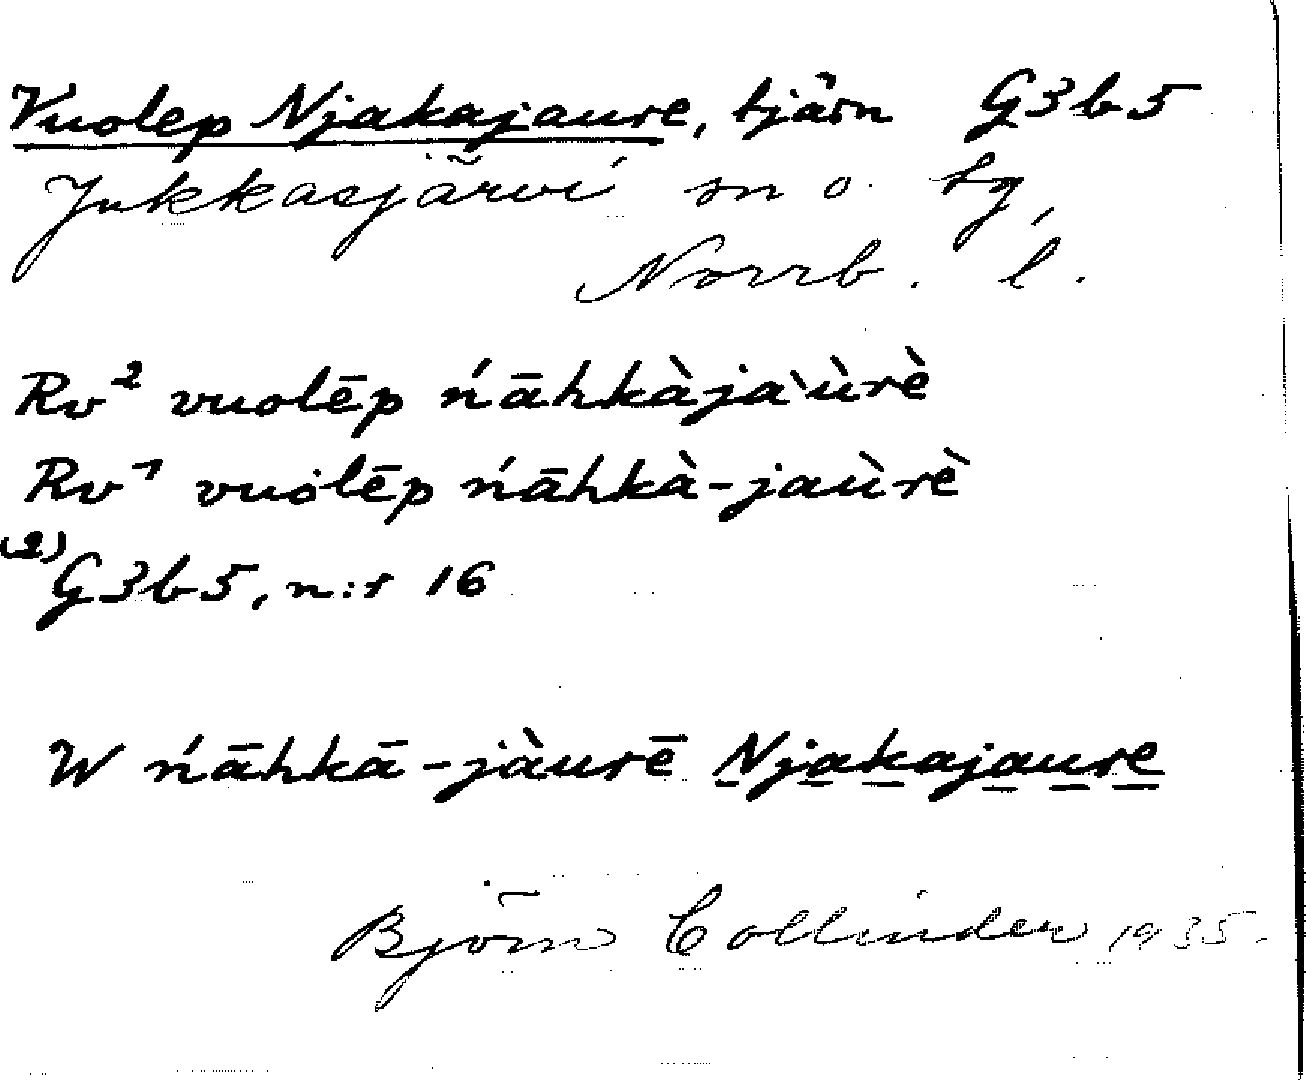 Vuolep Njakajaure, tjärn G3b5
Jukkasjärvi sn o. tg,
Norrb. l.
Rv² vuolēp ńāhkàja`ùrè
Rv¹ vuolēp ńāhkà-jaùrè
(2) G3b5, n:r 16
W ńāhkā-jàurē Njakajaure
Björn Collinder 1935.